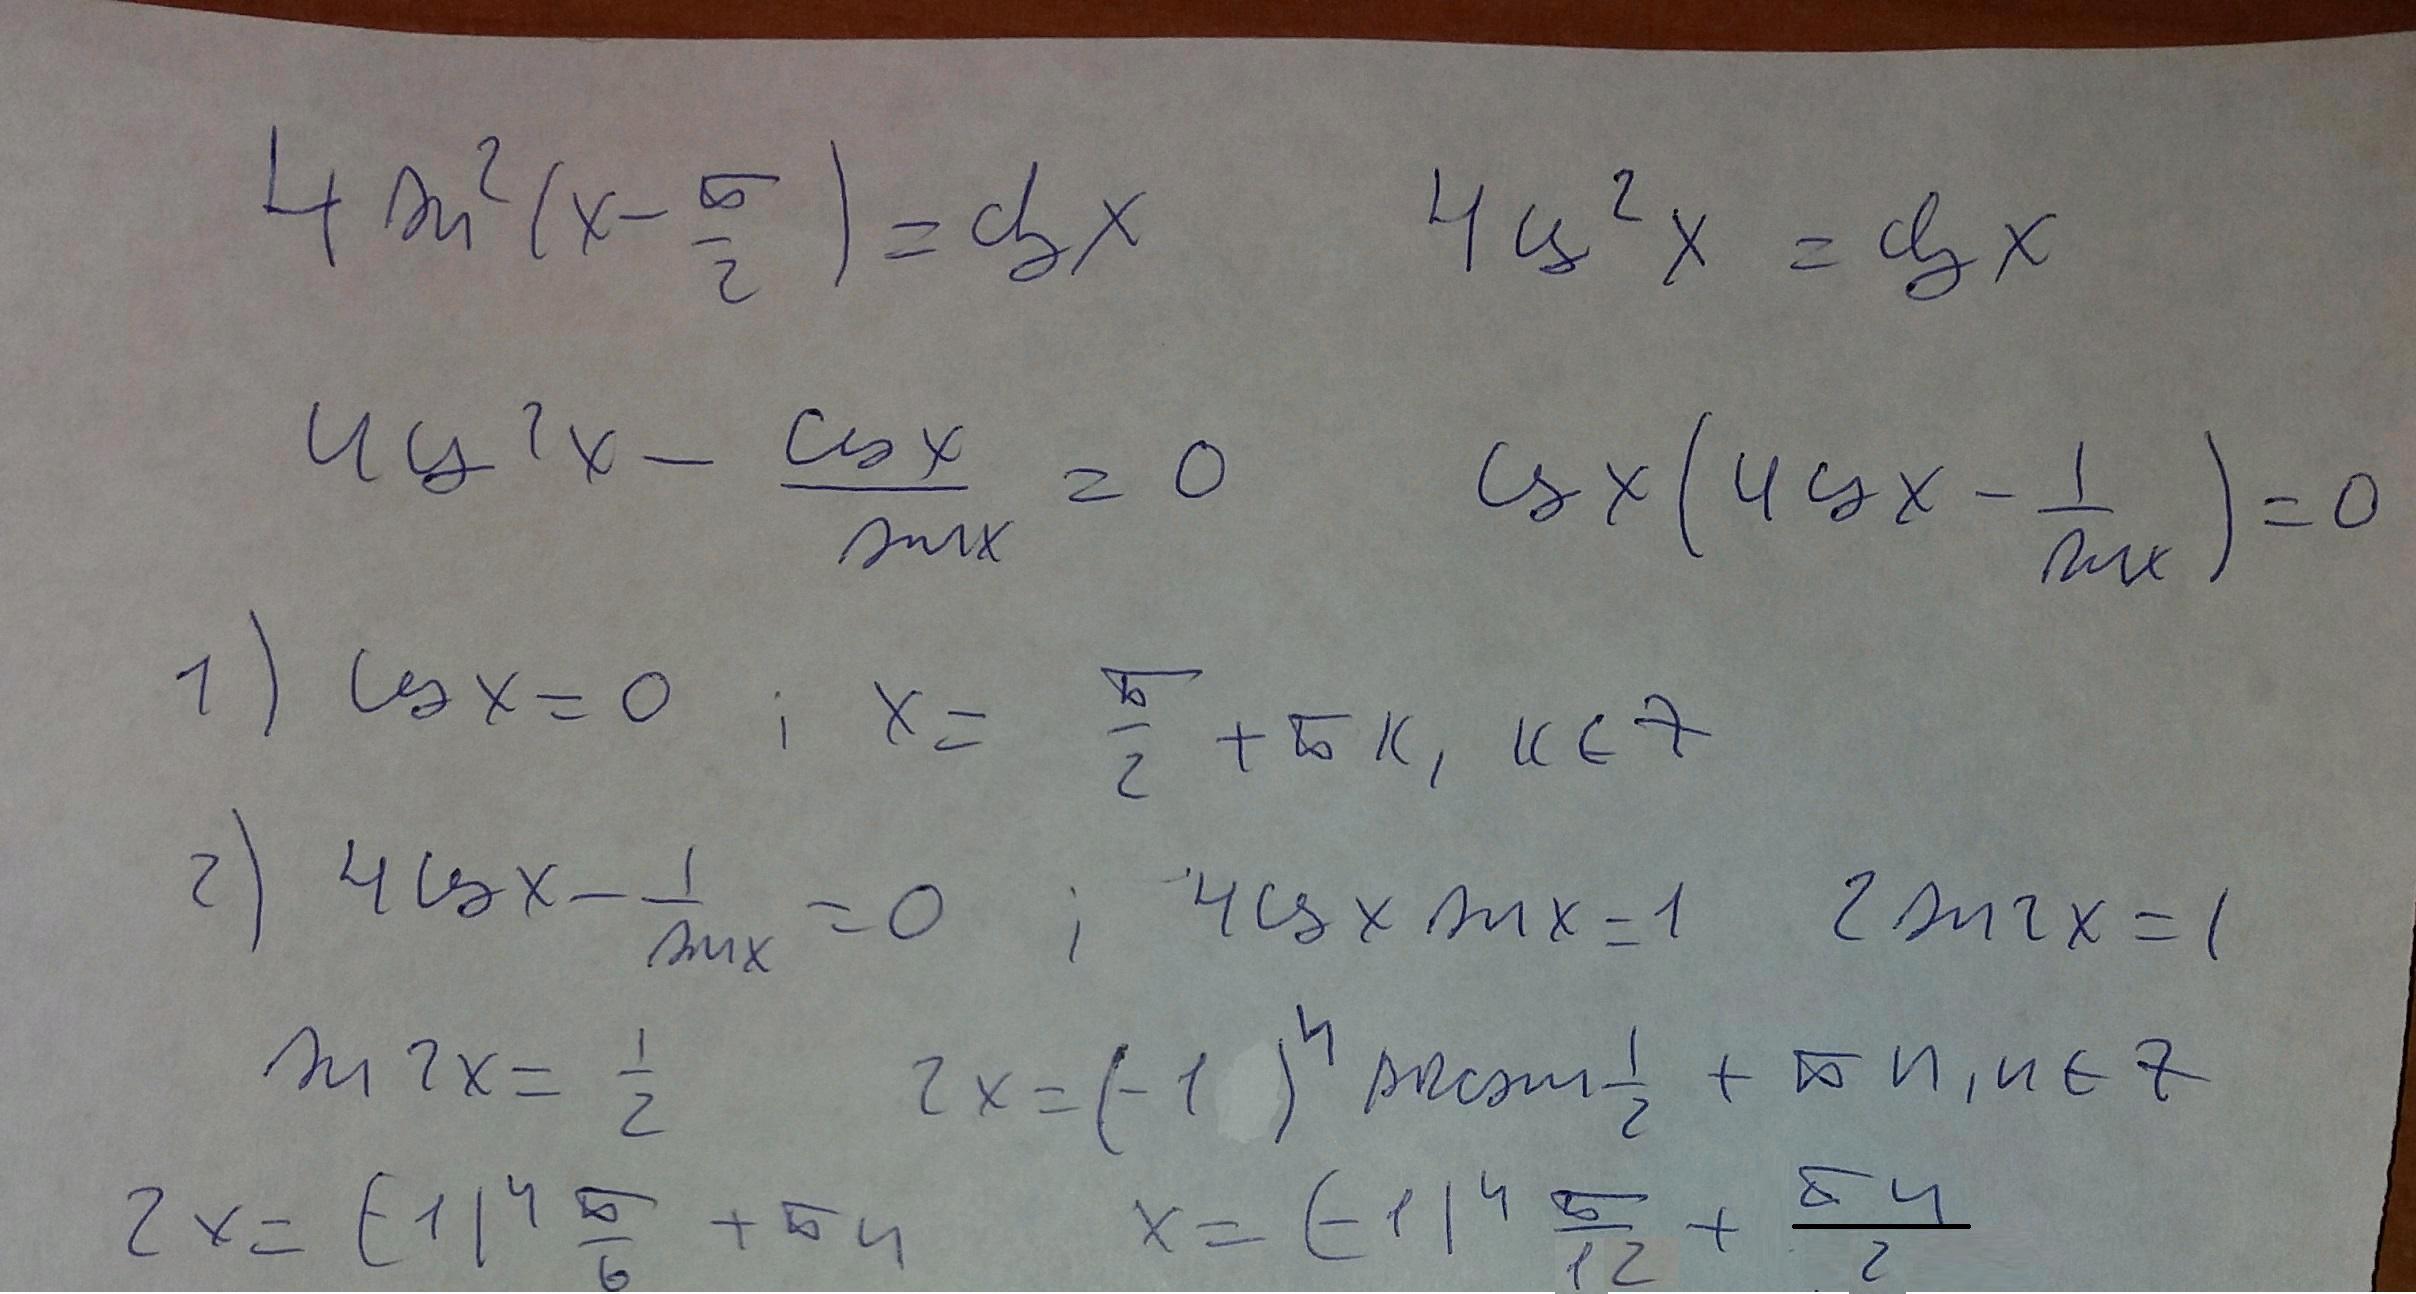 4 sin²(x - π/2) = ctg x 4 cos²x = ctg x
4 cos²x - cos x / sin x = 0 cos x (4 cos x - 1/sin x) = 0
1) cos x = 0 ; x = π/2 + πk, k ∈ Z
2) 4 cos x - 1/sin x = 0 ; 4 cos x sin x = 1 2 sin 2x = 1
sin 2x = 1/2 2x = (-1)ⁿ arcsin 1/2 + πn, n ∈ Z
2x = (-1)ⁿ π/6 + πn x = (-1)ⁿ π/12 + πn/2